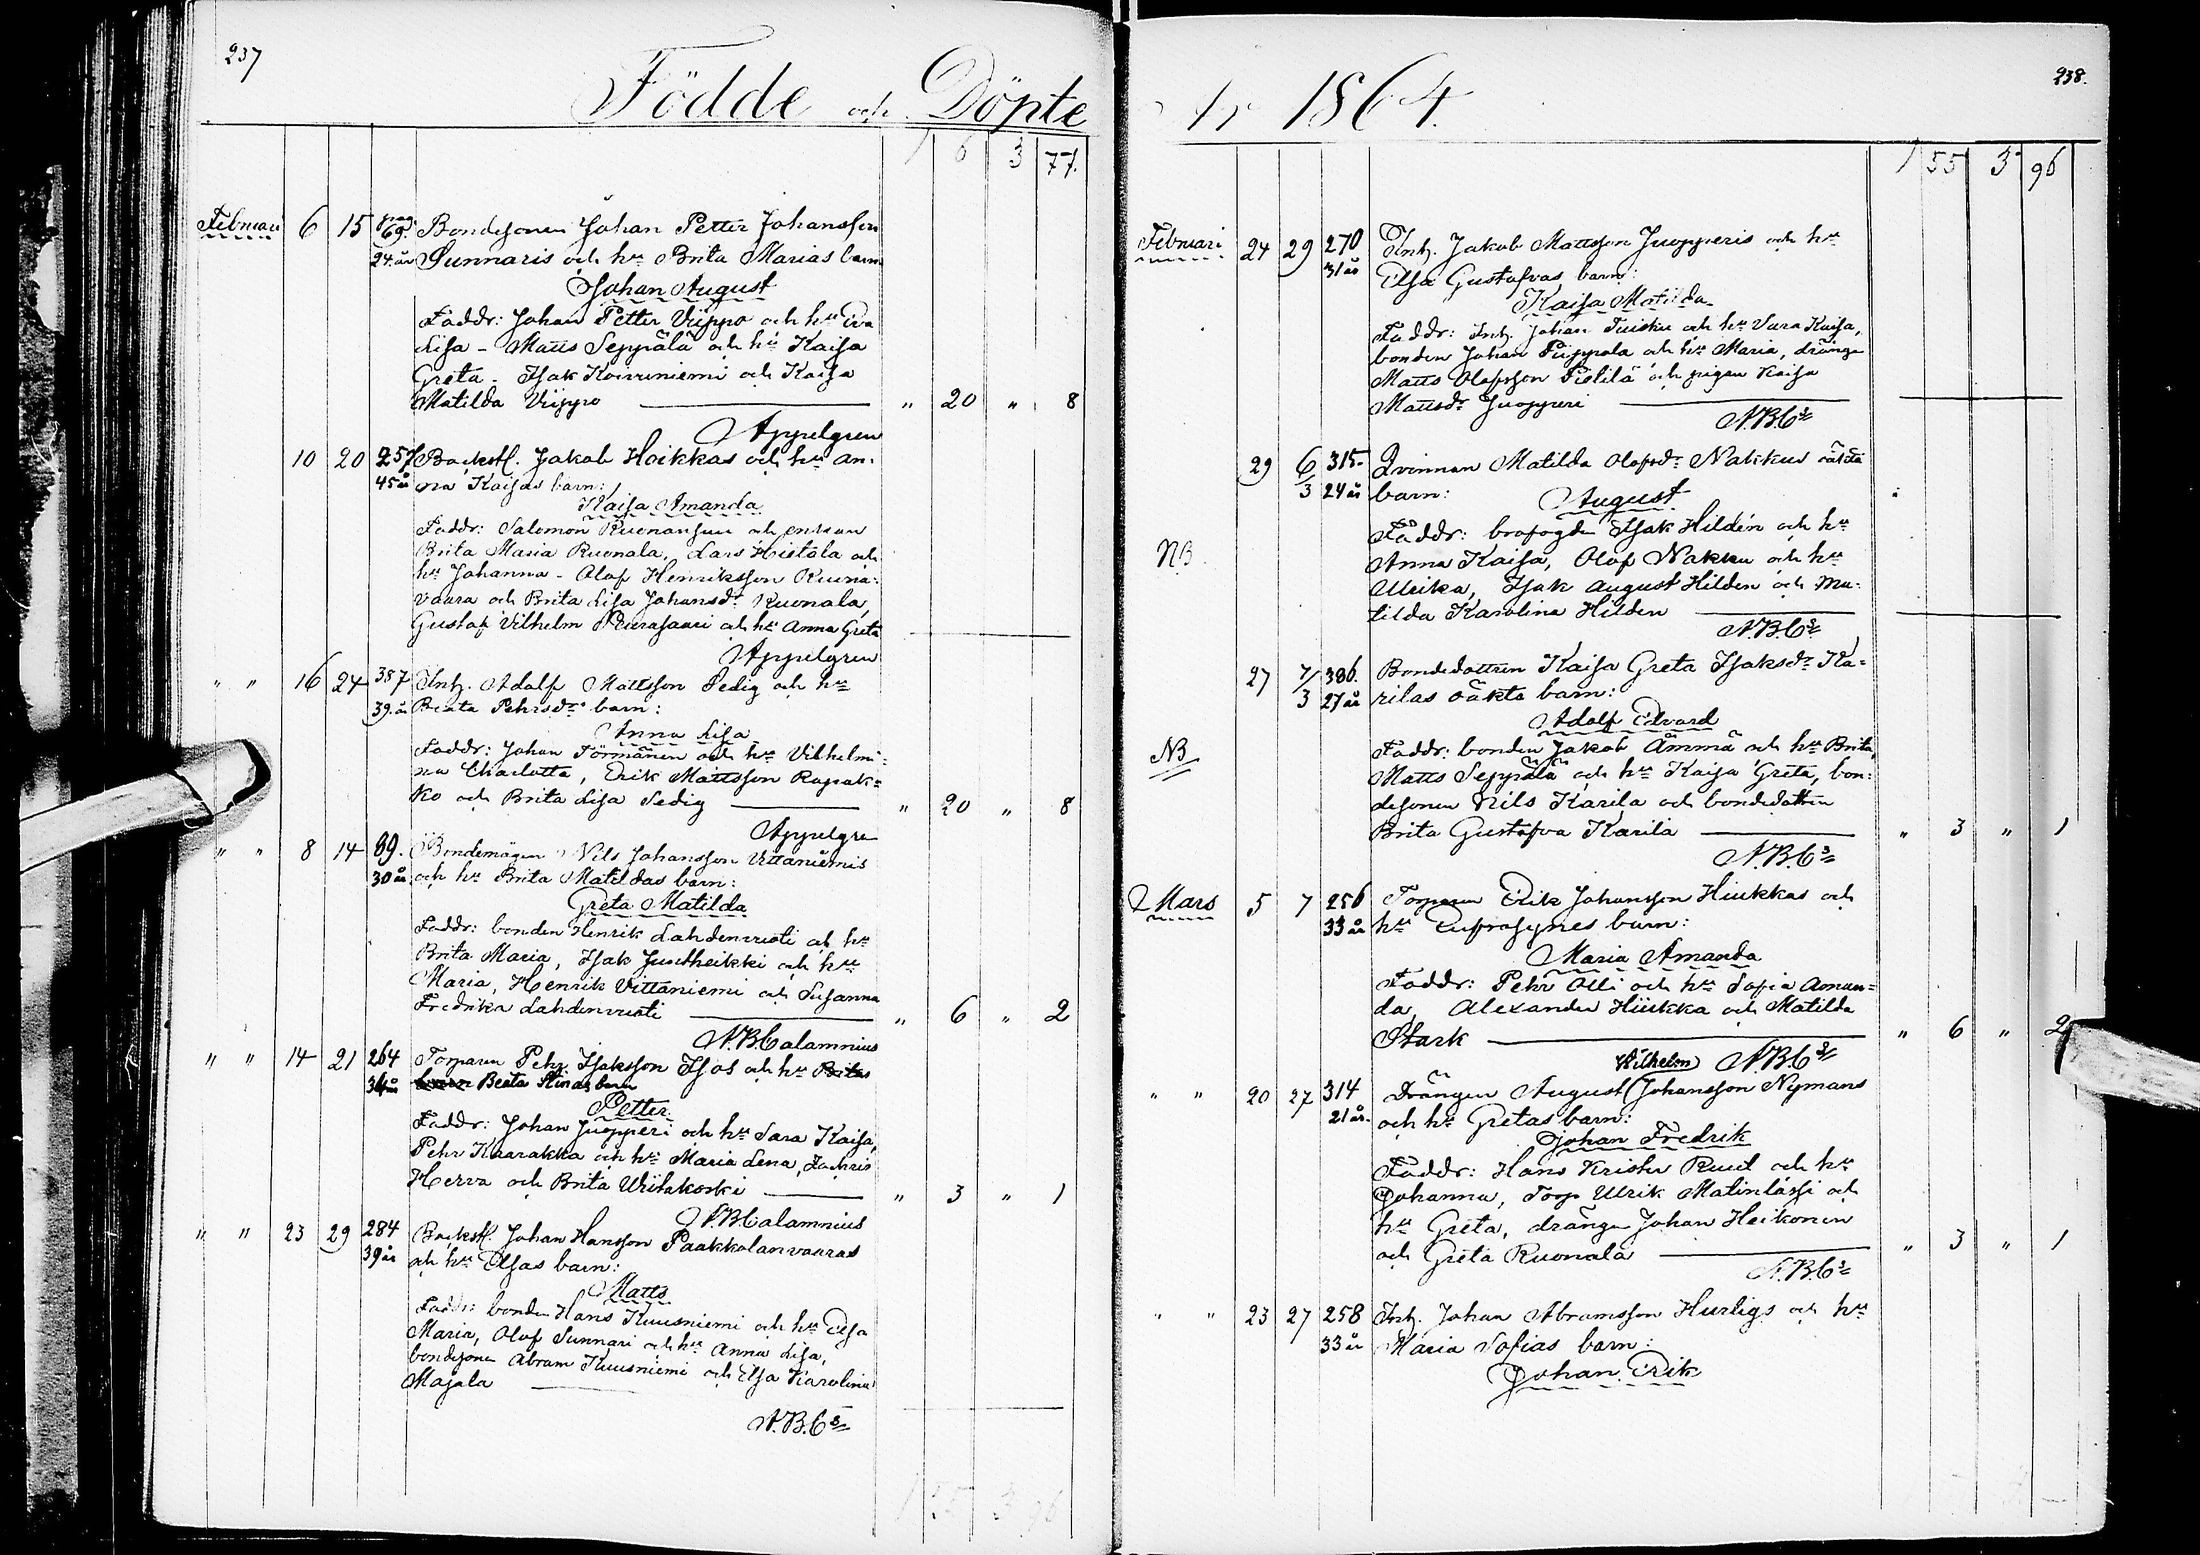 237
Födde och Döpte
1 6 3 77.
Februari 6 15 pag. 69. Bondesonen Johan Petter Johansson
24 år Sunnaris och hu Brita Marias barn
Johan August
Faddr: Johan Petter Viippo och hu Eva
Lisa - Matts Seppälä och hu Kaisa
Greta - Isak Koivuniemi och Kaisa
Matilda Viippo " 20 " 8
Appelgren
10 20 257 Backst. Jakob Hoikkas och hu An-
45 år na Kaisas barn:
Kaisa Amanda
Faddr: Salomon och enkan
Brita Maria Ruonala, Lars Hietala och
hu Johanna - Olof Henriksson Kuona-
vaara och Brita Lisa Johansdr Ruonala,
Gustaf Vilhelm och hu Anna Greta
Appelgren
" " 16 24 387 Inh. Adolf Mattsson Sedig och hu
39 år Beata Pehrsdrs barn:
Anna Lisa
Faddr: Johan Törmänen och hu Vilhelmi-
na Charlotta, Erik Mattsson Rapak-
ko och Brita Lisa Sedig " 20 " 8
Appelgre
" " 8 14 89. Bondemågen Nils Johansson Vittaniemis
30 år och hu Brita Matildas barn:
Greta Matilda
Faddr: bonden Henrik Lahdenvuoti och hu
Brita Maria, Isak Juustheikki och hu
Maria, Henrik Vittaniemi och Susanna
Fredrika Lahdenvuoti " 6 " 2
N.B.Calamnius
" " 14 21 264 Torparen Pehr Isaksson Isos och hu Britas
34 år barn Beata Stinas barn
Petter
Faddr: Johan Juopperi och hu Sara Kaisa,
Pehr Kaarakka och hu Maria Lena, Zachris
Herva och Brita Uitakoski " 3 " 1
N.B.Calamnius
" " 23 29 284 Backst. Johan Hansson Paakkolanvaaras
39 år och hu Elsas barn:
Matts
Faddr: bonden Hans Kuusniemi och hu Elsa
Maria, Olof Sunnari och hu Anna Lisa,
bondesonen Abram Kuusniemi och Elsa Karolina
Majala
N.B.Cs
1 55 3 96
238.
År 1864.
1 55 3 96
Februari 24 29 270 Inh. Jakob Mattsson Juopperis och hu
31 år Elsa Gustafvas barn:
Kaisa Matilda
Faddr: Inh. Johan Tuisku och hu Sara Kaisa,
bonden Johan Piippola och hu Maria, drängen
Matts Olofsson Pietilä och pigan Kaisa
Mattsdr Juopperi
N.B.Cs
29 6/3 315. Qvinnan Matilda Olofsdr Nakkus oäkta
24 år barn:
August
NB Faddr: brofogden Isak Hildén och hu
Anna Kaisa, Olof Nakku och hu
Ulrika, Isak August Hilden och Ma-
tilda Karolina Hilden
N.B.Cs
27 7/3 386. Bondedottren Kaisa Greta Isaksdr Ka-
27 år rilas oäkta barn:
Adolf Edvard
NB Faddr: bonden Jakob Ämmä och hu Brita,
Matts Seppälä och hu Kaisa Greta, bon-
desonen Nils Karila och bondedottren
Brita Gustafva Karila " 3 " 1
N.B.Cs
Mars 5 7 256 Torparen Erik Johansson Hiukkas och
33 år hu Eufrosynes barn:
Maria Amanda
Faddr: Pehr Olli och hu Sofia Aman-
da, Alexander Hiukka och Matilda
Stark " 6 " 2
N.B.Cs
Vilhelm
" " 20 27 314 Drängen August Johansson Nymans
21 år. och hu Gretas barn:
Johan Fredrik
Faddr: Hans Krister Ruut och hu
Johanna, Torp. Ulrik Matinlassi och
hu Greta, drängen Johan Heikonen
och Greta Ruonala " 3 " 1
N.B.Cs
" " 23 27 258 Inh. Johan Abramsson Hurligs och hu
33 år Maria Sofias barn:
Johan Erik